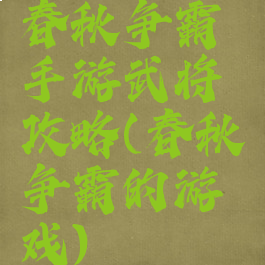 春秋争霸
手游武将
攻略(春秋
争霸的游
戏)